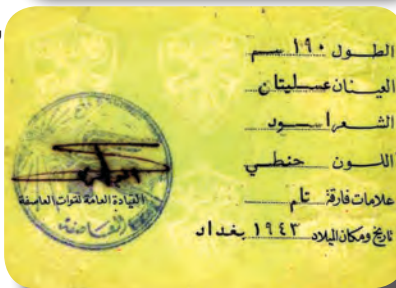 الطول ١٩٠ سم
العينان عسليتان
الشعر اسود
اللون حنطي
علامات فارقة تام
تاريخ ومكان الميلاد ١٩٤٣ بغداد
القيادة العامة لقوات العاصفة
العاصفة